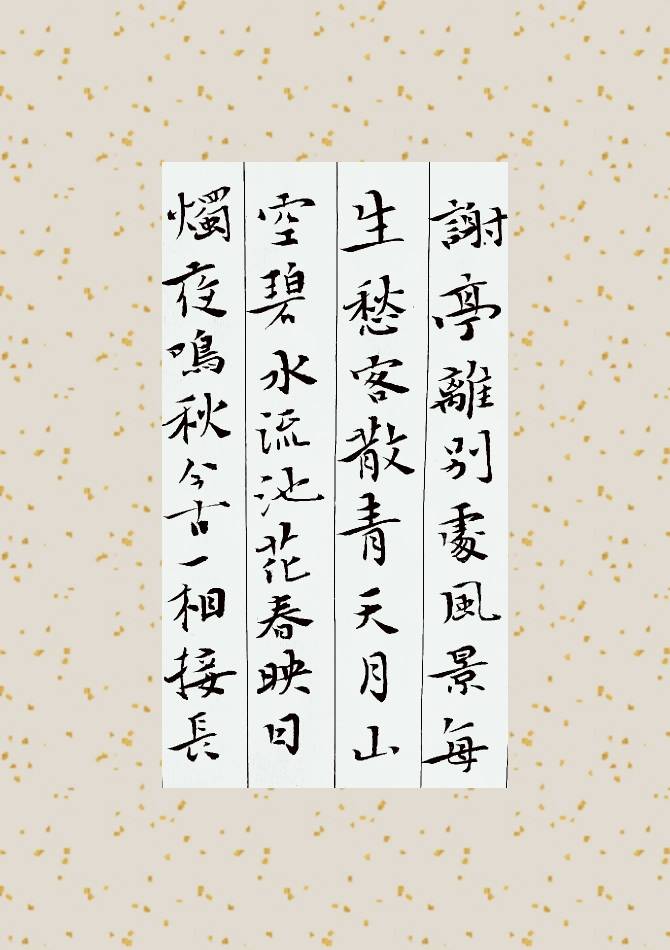 謝亭離別處風景每
生愁客散青天月山
空碧水流池花春映日
燭夜鳴秋今古一相接長